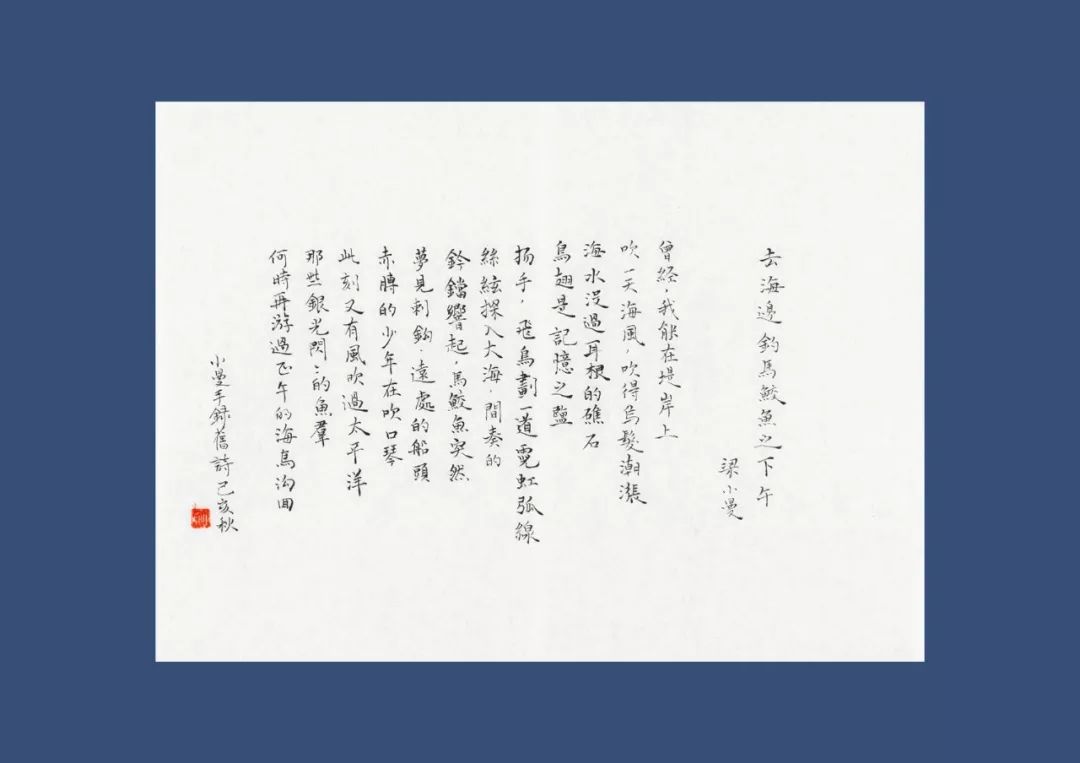 去海邊釣馬鮫魚之下午
梁小曼
曾經，我能在堤岸上
吹一天海風，吹得烏髮潮漲
海水浸過耳根的礁石
鳥翅是記憶之鹽
扬手，飛鳥劃一道霓虹弧線
絲絃探入大海，間奏的
鈴鐺響起，馬鮫魚突然
夢見刺鈎，遠處的船頭
赤膊的少年在吹口琴
此刻又有風吹過太平洋
那些銀光閃〻的魚羣
何時再游過正午的海馬溝回
小曼手録舊詩己亥秋